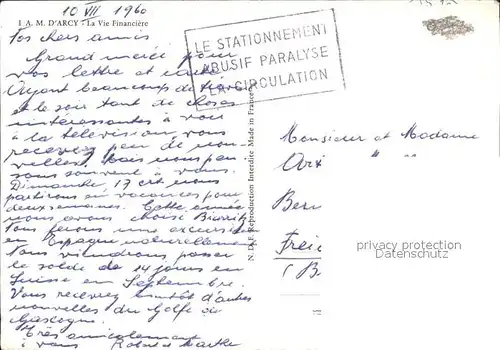 10 VII 1960
I A. M. D'ARCY - La Vie Financière
LE STATIONNEMENT
ABUSIF PARALYSE
LA CIRCULATION
chers amis
Grand merci pour
vos lettre et carte
Ayant beaucoup de travail
et le soir tant de choses
intéressantes à voir
à la télévision, vous
recevez peu de nou-
velles. Mais nous pen-
sons souvent à vous.
Dimanche, 17 crt nous
partirons en vacances pour
deux semaines. Cette année
nous avons choisi Biarritz
Nous ferons une excursion
en Espagne naturellement
Nous viendrons passer
le solde de 14 jours en
Suisse en Septembre.
Vous recevrez bientôt d'autres
nouvelles du Golfe de
Gascogne.
Très amicalement
à vous Robert Marthe
N. D. F. Reproduction Interdite Made in France
Monsieur et Madame
" "
Bern
Freie
privacy protection
Datenschutz